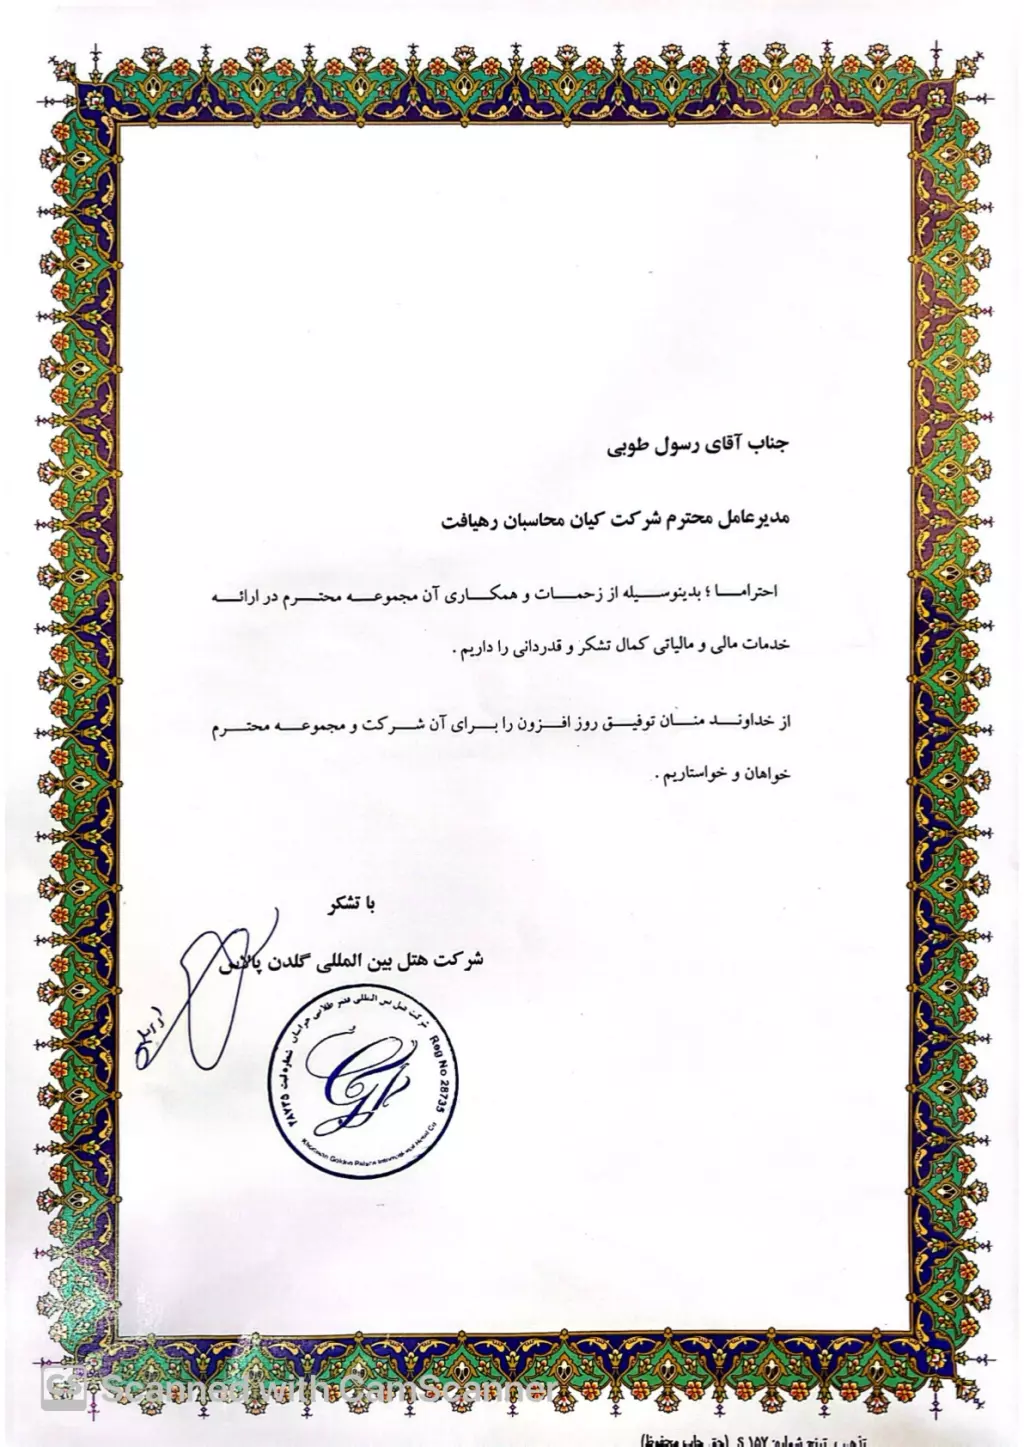 جناب آقای رسول طوبی
مدیرعامل محترم شرکت کیان محاسبان رهیافت
احتراما ؛ بدینوسیله از زحمات و همکاری آن مجموعه محترم در ارائه
خدمات مالی و مالیاتی کمال تشکر و قدردانی را داریم .
از خداوند منان توفیق روز افزون را برای آن شرکت و مجموعه محترم
خواهان و خواستاریم .
با تشکر
شرکت هتل بین المللی گلدن پالاس
شرکت هتل بین المللی قصر طلایی خراسان شماره ثبت ۲۸۷۳۵
Reg No 28735
Khorasan Golden Palace International Hotel Co
Scanned with CamScanner
تذهیب ترنج شماره: S ۱۵۷ (حق چاپ محفوظ)